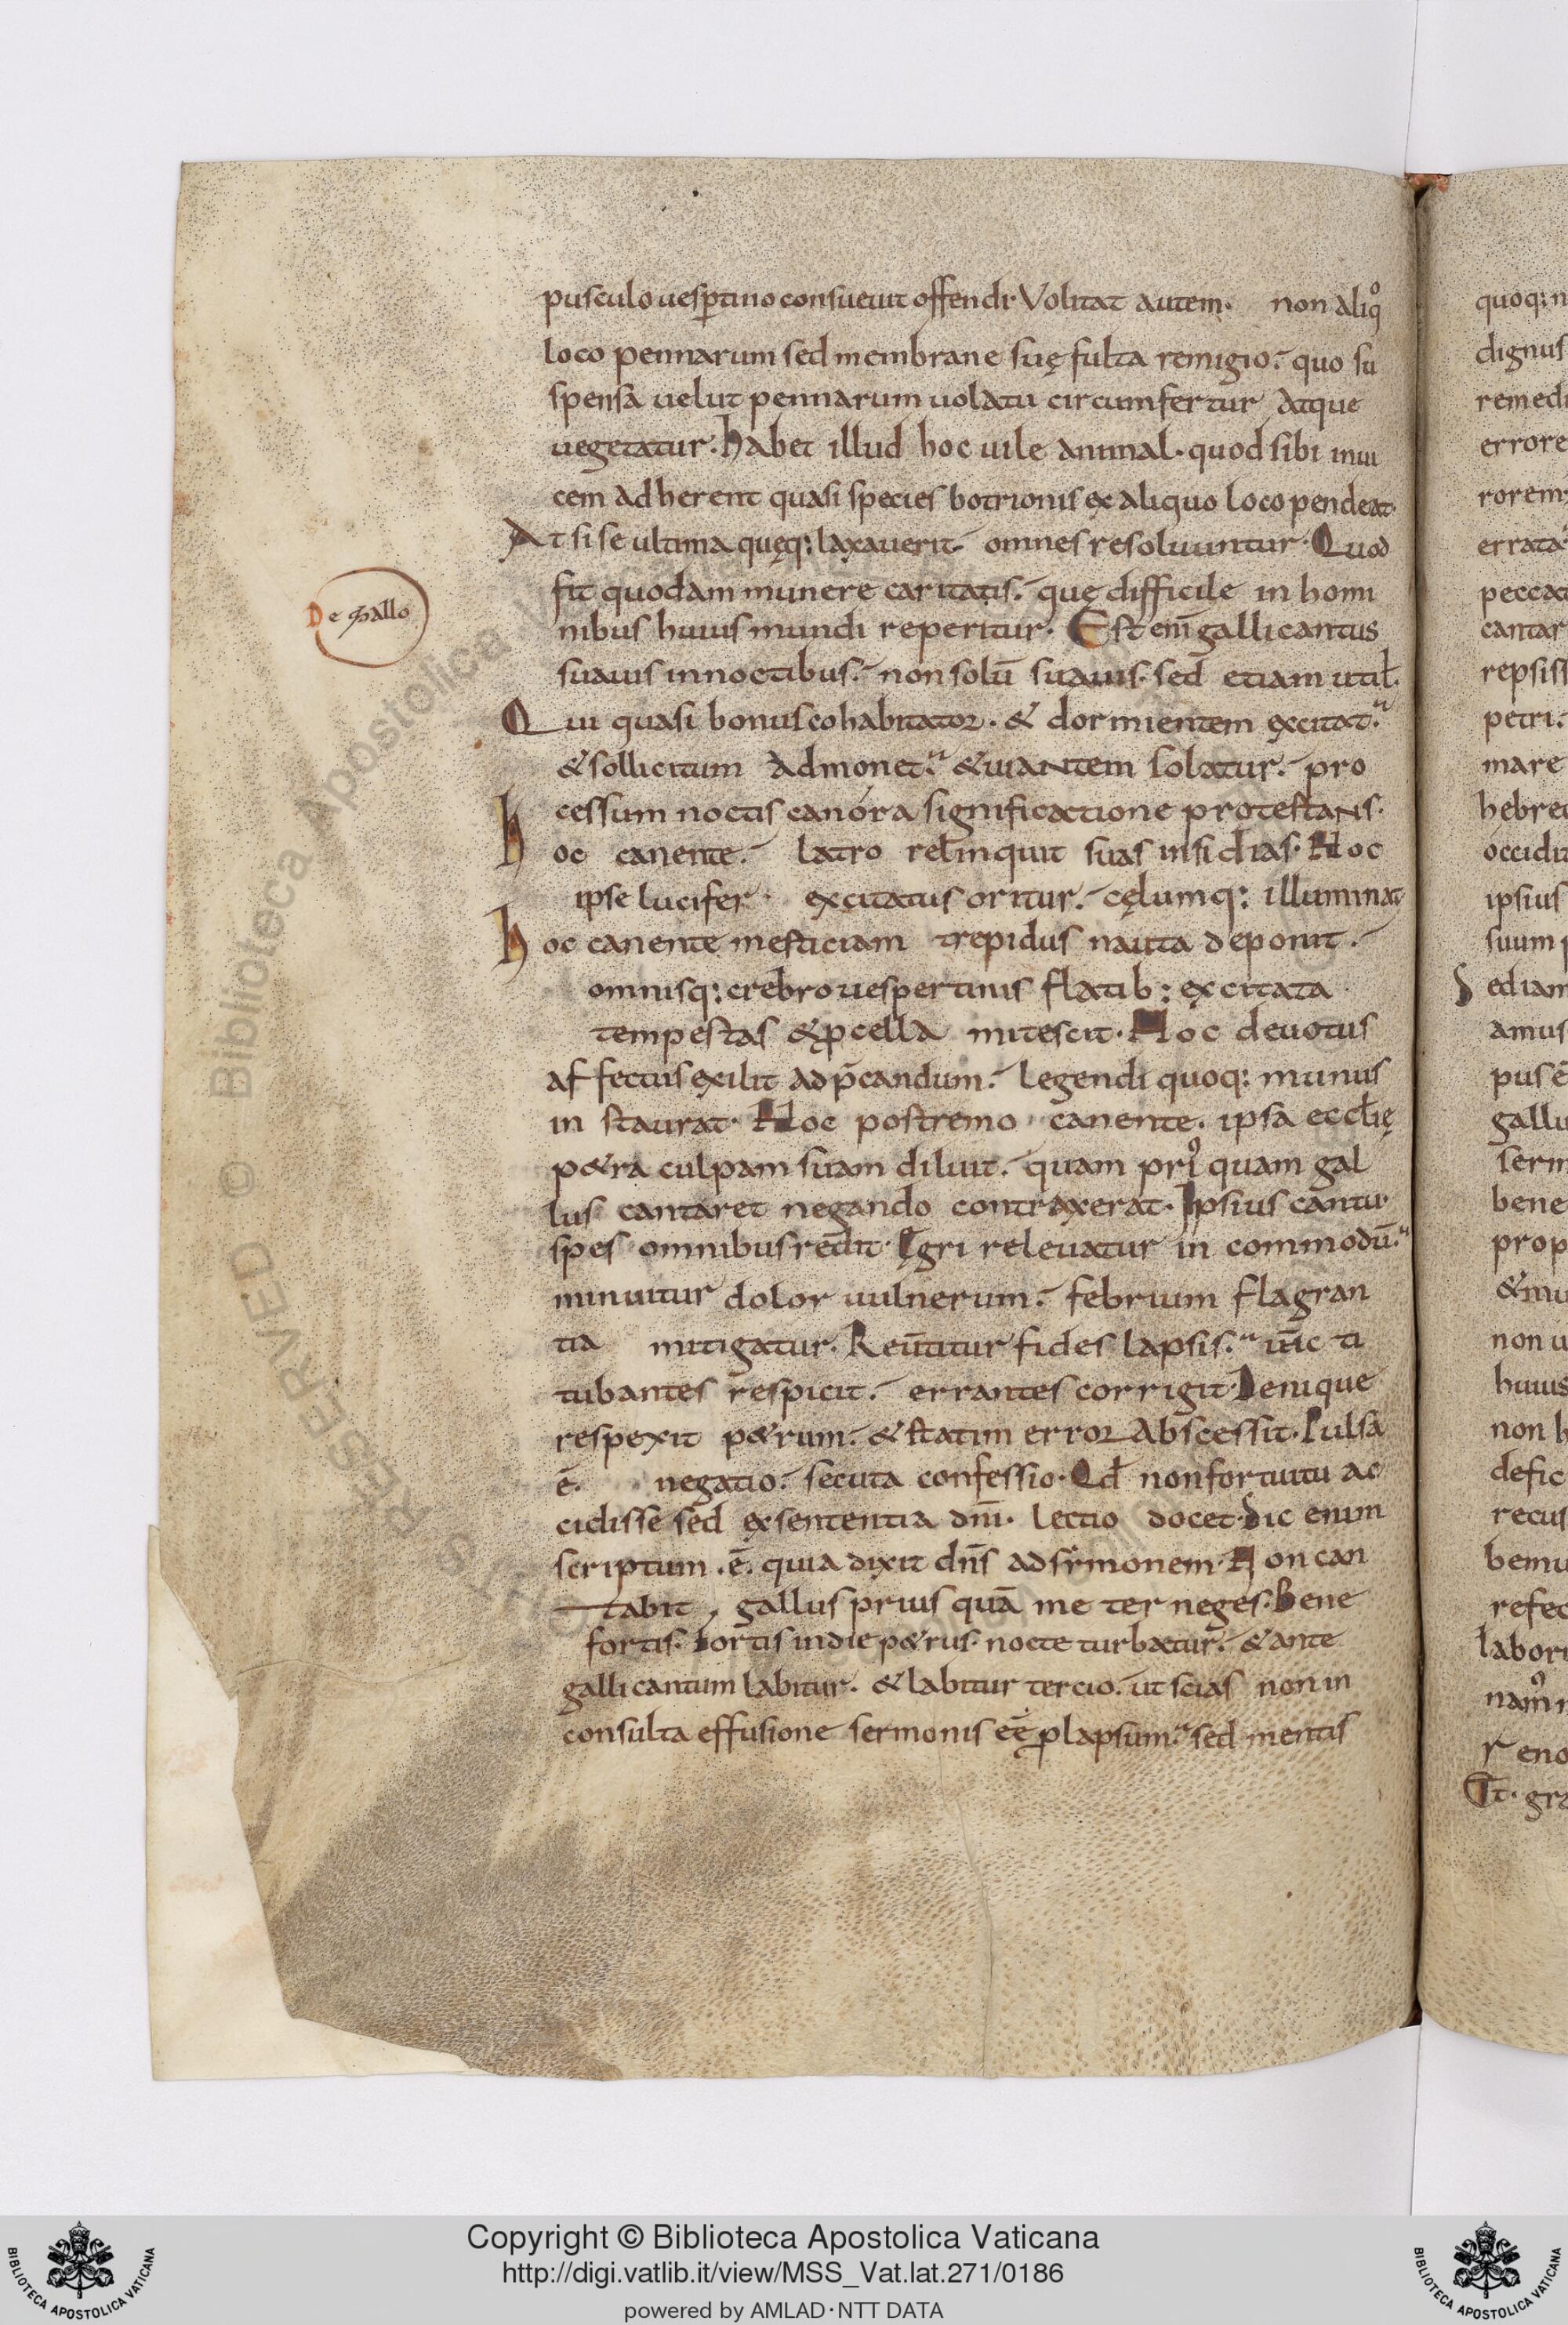 pusculo uesꝑtino consueuit offendi· Volitat autem· non aliqͦ
loco pennarum sed membrane suę fulta remigio· quo su
spensa uelut pennarum uolatu circumfertur Atque
uegetatur· habet illud hoc uile animal· quod sibi inui
cem adherent quasi species botrionis ex aliquo loco pendeat·
At si se ultima quęq: laxauerit omnes resoluuntur· Quod
fit quodam munere caritatis· quę difficile in homi
nibus huius mundi reperitur· Est eni̅ galli cantus
De Gallo
suauis in noctibus· non solū suauis· sed etiam util̵·
Qui quasi bonus cohabitator· & dormientem excitat·
& sollicitum Admonet· & uiantem solatur· pro
cessum noctis canóra significactione protestans·
hoc canente· latro rel̵inquit suas insidias· Hoc
ipse lucifer· excitatus oritur· cęlumq: illuminat
hoc canente mesticiam trepidus nauta deponit·
omnisq: crebro uespertinis flatib: excitata
tempestas & ꝓcella mitescit· Hoc deuotus
affectus exilit ad p̄candum· legendi quoq: munus
in staurat· Hoc postremo canente· ipsa eccl̵ię
p&ra culpam suam diluit· quam pri᾿ quam gal
lus cantaret negando contraxerat· Ipsius cantu
spes omnibus redit· Ęgri releuatur in commodū·
minuitur dolor uulnerum· febrium flagran
tia mitigatur· Reūtitur fides lapsis· ih̅c ti
tubantes respicit· errantes corrigit· Denique
respexit p&rum· & statim error Abscessit· Pulsa
ē· negatio· secuta confessio· Qd̵ non fortuitu ac
cidisse sed ex sententia dni̅· lectio docet· Sic enim
scriptum ·ē· quia dixit dns̅ ad symonem· Non can
tabit gallus prius quā me ter neges· Bene
fortis· Fortis in die p&rus· nocte turbatur· & ante
galli cantum labitur· & labitur tercio· ut scias non in
consulta effusione sermonis eē ꝓlapsum· sed mentis
quoq: n
dignus
remedi
errore
rorem
errata
peccat
cantar
repsiss
petri·
mare
hebreo
occidit
ipsius
suum p
Sed iam
amus
pus ē
gallu
serm
bene
prop
& mu
non u
huius
non h
defic
recus
bemu
refec
labori
r eno
Et· gra
RESERVED © Biblioteca Apostolica Vaticana
Copyright © Biblioteca Apostolica Vaticana
http://digi.vatlib.it/view/MSS_Vat.lat.271/0186
powered by AMLAD·NTT DATA
BIBLIOTECA APOSTOLICA VATICANA
BIBLIOTECA APOSTOLICA VATICANA